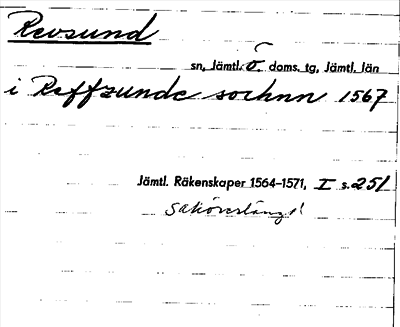 Revsund
sn, Jämtl. ö. doms. tg, Jämtl. län
i Reffzunde sochnn 1567
Jämtl. Räkenskaper 1564-1571, I s. 251
saköreslängd